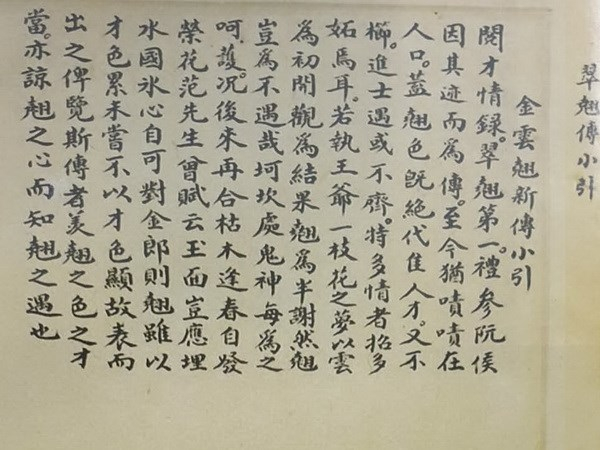 翠翹傳小引
金雲翹新傳小引
閱才情録。翠翹第一。禮參阮侯
因其迹而爲傳。至今猶嘖嘖在
人口。蓋翹色旣絶代佳人才。又不
櫛。進士遇或不齊。特多情者招多
妬焉耳。若執王爺一枝花之夢以雲
爲初開觀爲結果翹爲半謝然翹
豈爲不遇哉坷坎處鬼神每爲之
呵護。况後來再合枯木逢春自發
榮花范先生曾賦云玉面豈應埋
水國氷心自可對金郎則翹雖以
才色累未嘗不以才色顯故表而
出之俾覽斯傳者羙翹之色之才
當。亦諒翹之心而知翹之遇也